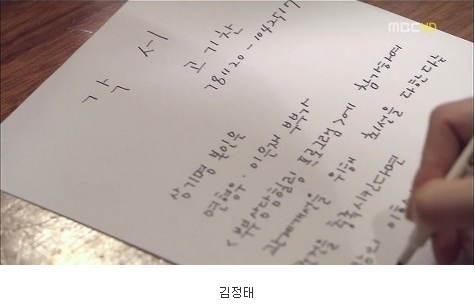 MBC HD
각 서
고 기 찬
781120-1042517
상기명 본인은
연형우. 이은재 부부가
<부부상담힐링 프로그램>에 참가하여
관계개선을 위해 최선을 다한다는
조건을 충족시킨다면
김정태